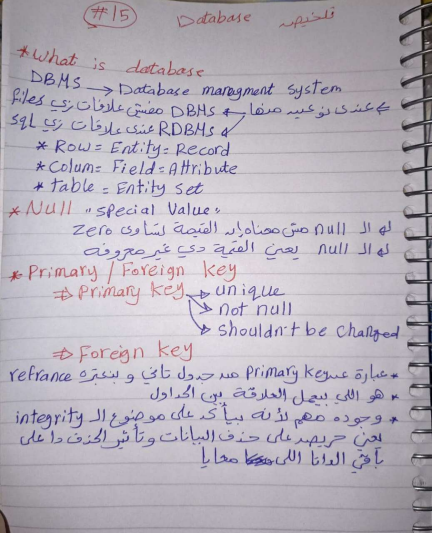 #15
تلخيص Database
* What is database
DBMS → Database managment system
← عندى نوعين منها ← DBMS مفيش علاقات زي files
RDBMS عندى علاقات زي sql
* Row = Entity = Record
* Colum = Field = Attribute
* table = Entity set
* Null "special Value"
له ال null مش معناه إن القيمة تساوى zero
له ال null يعني القيمة دي غير معروفه
* Primary / Foreign key
⇒ Primary key → unique
→ not null
→ shouldn't be changed
⇒ Foreign key
* عبارة عن Primary key من جدول تاني و بنعتبره refrance
* هو اللي بيعمل العلاقة بين الجداول
* وجوده مهم لأنه بيأكد على موضوع ال integrity
يعني حريص على حذف البيانات وتأثير الحذف دا على
باقي الداتا اللى معايا